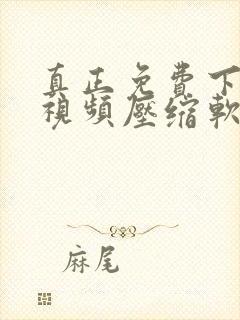 真正免費下
視頻壓縮軟
麻尾